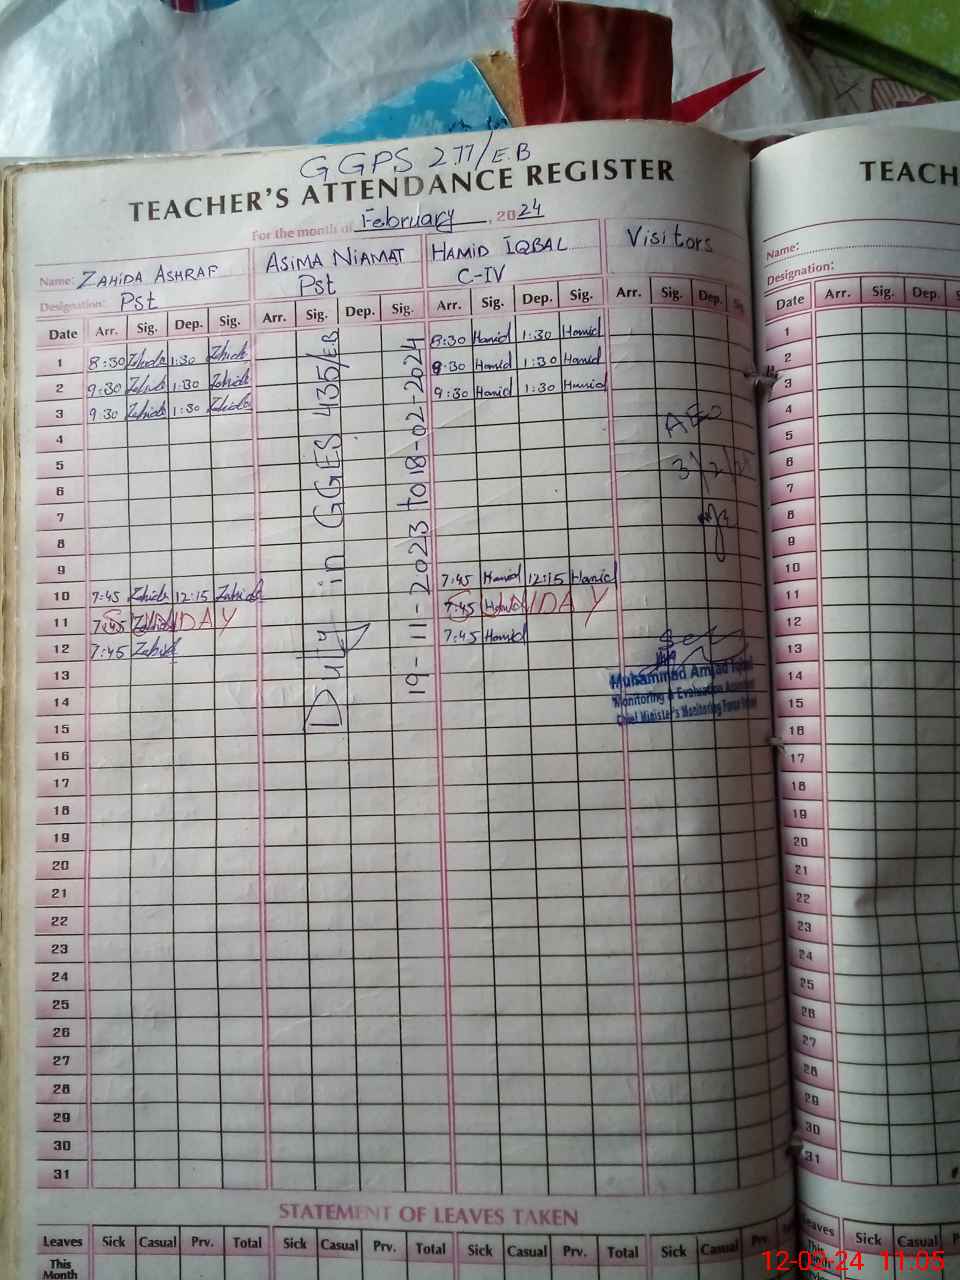 GGPS 277/E.B
TEACHER'S ATTENDANCE REGISTER
For the month of February, 2024
Name: ZAHIDA ASHRAF ASIMA NIAMAT HAMID IQBAL Visitors
Designation: Pst Pst C-IV
Date Arr. Sig. Dep. Sig. Arr. Sig. Dep. Sig. Arr. Sig. Dep. Sig. Arr. Sig. Dep. Sig.
1 8:30 Zahida 1:30 Zahida 8:30 Hamid 1:30 Hamid
2 9:30 Zahida 1:30 Zahida 9:30 Hamid 1:30 Hamid
3 9:30 Zahida 1:30 Zahida 9:30 Hamid 1:30 Hamid
4 AEO
5
6 3/2/
7
8
9
10 7:45 Zahida 12:15 Zahida 7:45 Hamid 12:15 Hamid
11 7:45 SUNDAY 7:45 Hamid SUNDAY
12 7:45 Zahida 7:45 Hamid
13
14
15
16
17
18
19
20
21
22
23
24
25
26
27
28
29
30
31
Duty in GGES 435/EB
19-11-2023 to 18-02-2024
Muhammad Amjad Iqbal
Monitoring & Evaluation Assistant
Chief Minister's Monitoring Force
STATEMENT OF LEAVES TAKEN
Leaves Sick Casual Prv. Total Sick Casual Prv. Total Sick Casual Prv. Total Sick Casual Prv.
This
Month
TEACH
Name:
Designation:
Date Arr. Sig. Dep.
1
2
3
4
5
6
7
8
9
10
11
12
13
14
15
16
17
18
19
20
21
22
23
24
25
26
27
28
29
30
31
Leaves Sick Casual
This
Month
12-02-24 11:05